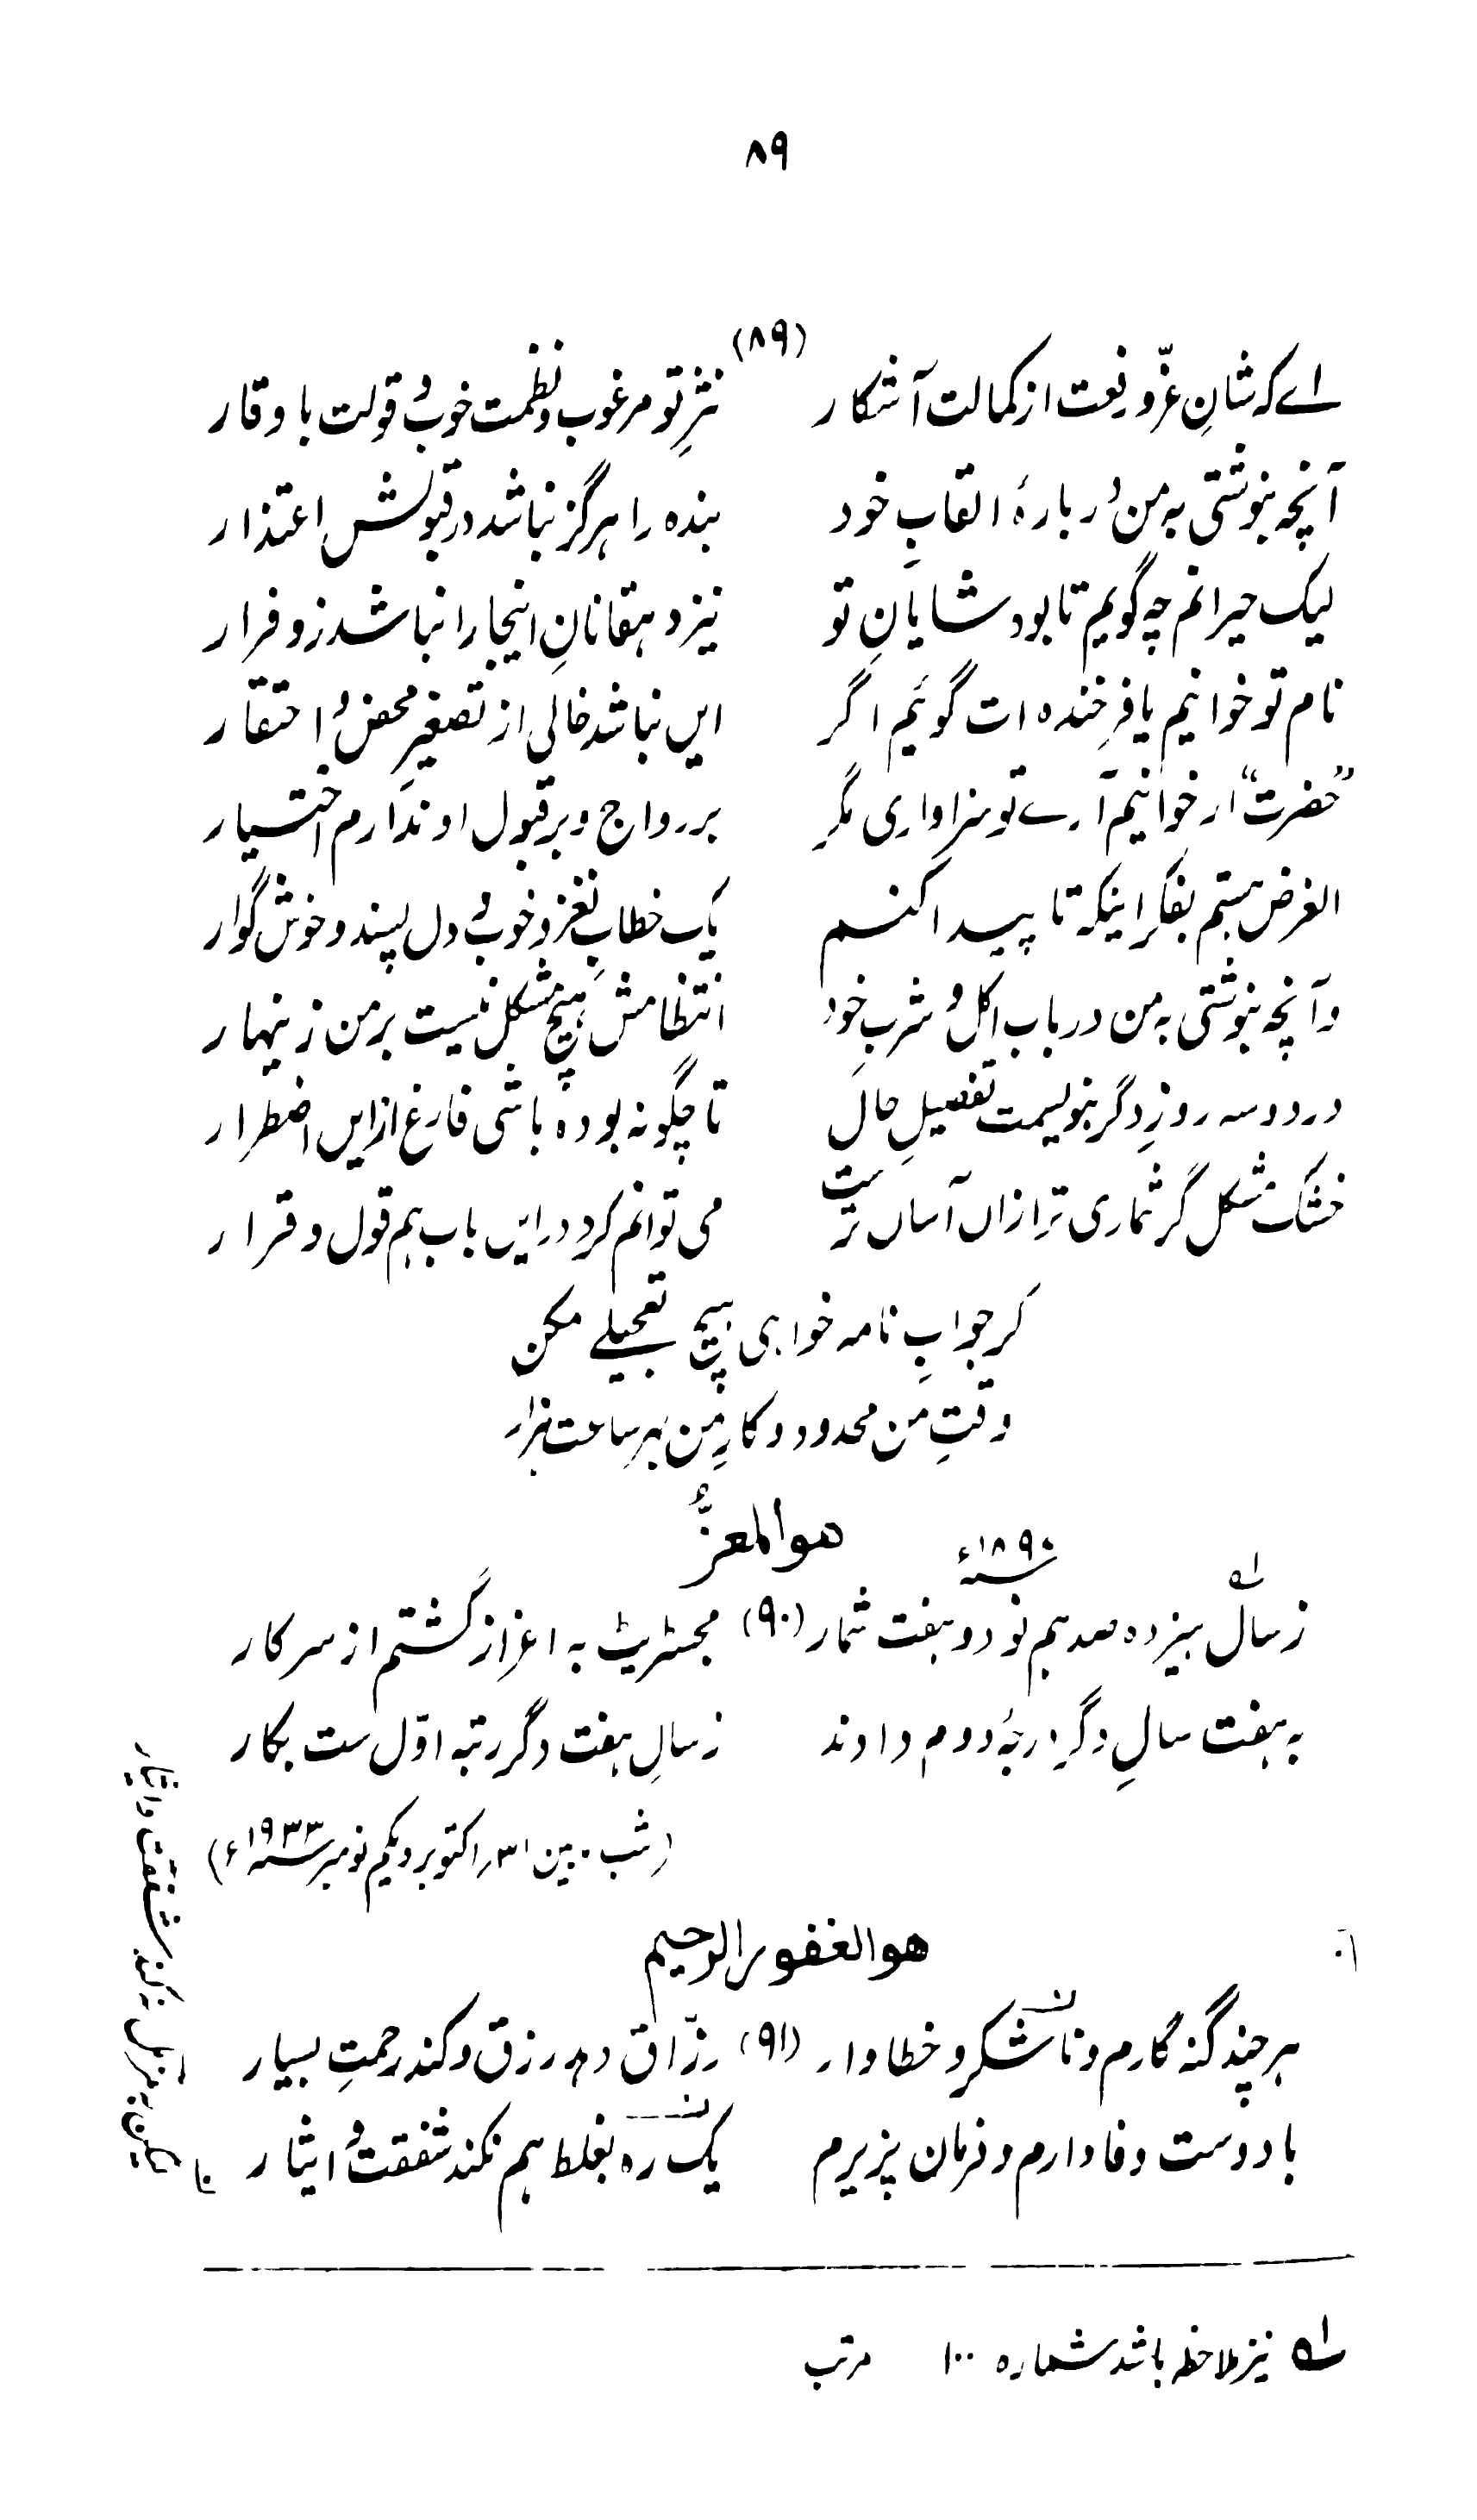 ۸۹
(۸۹)
اے کہ شانِ عزّ و رفعت از کمالت آشکار نثرِ تو مرغوب و نظمت خوب و قولت با وقار
آنچہ بنوشتی بہ من دربارۂ القابِ خود بندہ را ہرگز نباشد در قبولش اعتذار
لیک حیرانم چہ گویم تا بود شایانِ تو نیز دہقانانِ اینجا را نباشد زو فرار
نام تو خوانیم یا فرخندہ ات گوئیم اگر این نباشد خالی از تصغیر محض و احتقار
"حضرت" ار خوانیم آرے تو سزاواری مگر بر رواج و بر قبول او ندارم اختیار
الغرض ہستم بفکرِ اینکہ تا پیدا کنم یک خطاب نغز و خوب و دل پسند و خوش گوار
و آنچہ بنوشتی بہ من در باب اکل و شرب خود انتظامش ہیچ مشکل نیست بر من زینہار
در دو سہ روزِ دگر بنویسمت تفصیلِ حال تا چگونہ بودہ باشی فارغ از این اضطرار
خشک مشکل گر شماری تر ازان آساں ترست می توانم کرد در ایں باب ہم قول و قرار
گر جوابِ نامہ خواہی ہیچ تعجیلے مکن
وقتِ من محدود و کارِ من بہر ساعت ہزار
ھو المعزُّ
۱۸۹۰ سنہء
ز سالؔ ہیزدہ صد ہم نود و ہفت شمار (۹۰) مجسٹریٹ بہ اعزاز گشتم از سرکار
بہ ہفت سالِ دگر درجۂ دوم دادند ز سالِ ہفت دگر رتبہ اوّل ست بکار
(شب بین ۳۱ اکتوبر و یکم نومبر سنہ ۱۹۳۳ء)
ھو الغفور الرحیم
ہر چند گنہ گارم و ناشکر و خطا وار (۹۱) رزّاق دہد رزق و کند رحمتِ بسیار
با دوست وفا دارم و فرمان پزیرم یک رہ بغلط ہم نکند شفقت و ایثار
لہ نیز ملاحظہ باشد شمارہ ۱۰۰ مرتب